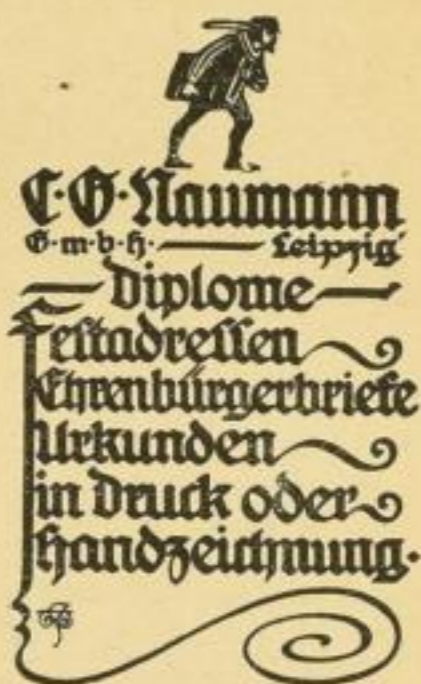 C·G·Naumann
G·m·b·H· Leipzig
Diplome
Festadressen
Ehrenbürgerbriefe
Urkunden
in Druck oder
Handzeichnung.